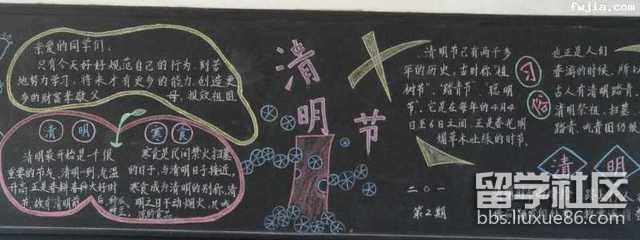 亲爱的同学们:
只有今天好好规范自己的行为,刻苦
地努力学习,将来才有更多的能力,创造更
多的财富孝敬父母,报效祖国
清明
寒食
清明最开始是一个很
重要的节气,清明一到,气温
升高,正是春耕春种大好时
寒食是民间禁火扫墓
的日子,与清明日子接近,
寒食成为清明的别称,清
明之日不动烟火,只吃
清明节
清明节已有两千多
年的历史,古时称“祖
树节”、“踏青节”、聪明
节”。它是在每年的4月4
日至6日之间,正是春光明
媚草木吐绿的时节。
二〇一
第2期
习俗
也正是人们
春游的时候,所以
古人有清明踏青,
清明祭祖、扫墓、
清明
fwjia.com
留学社区
bbs.liuxue86.com